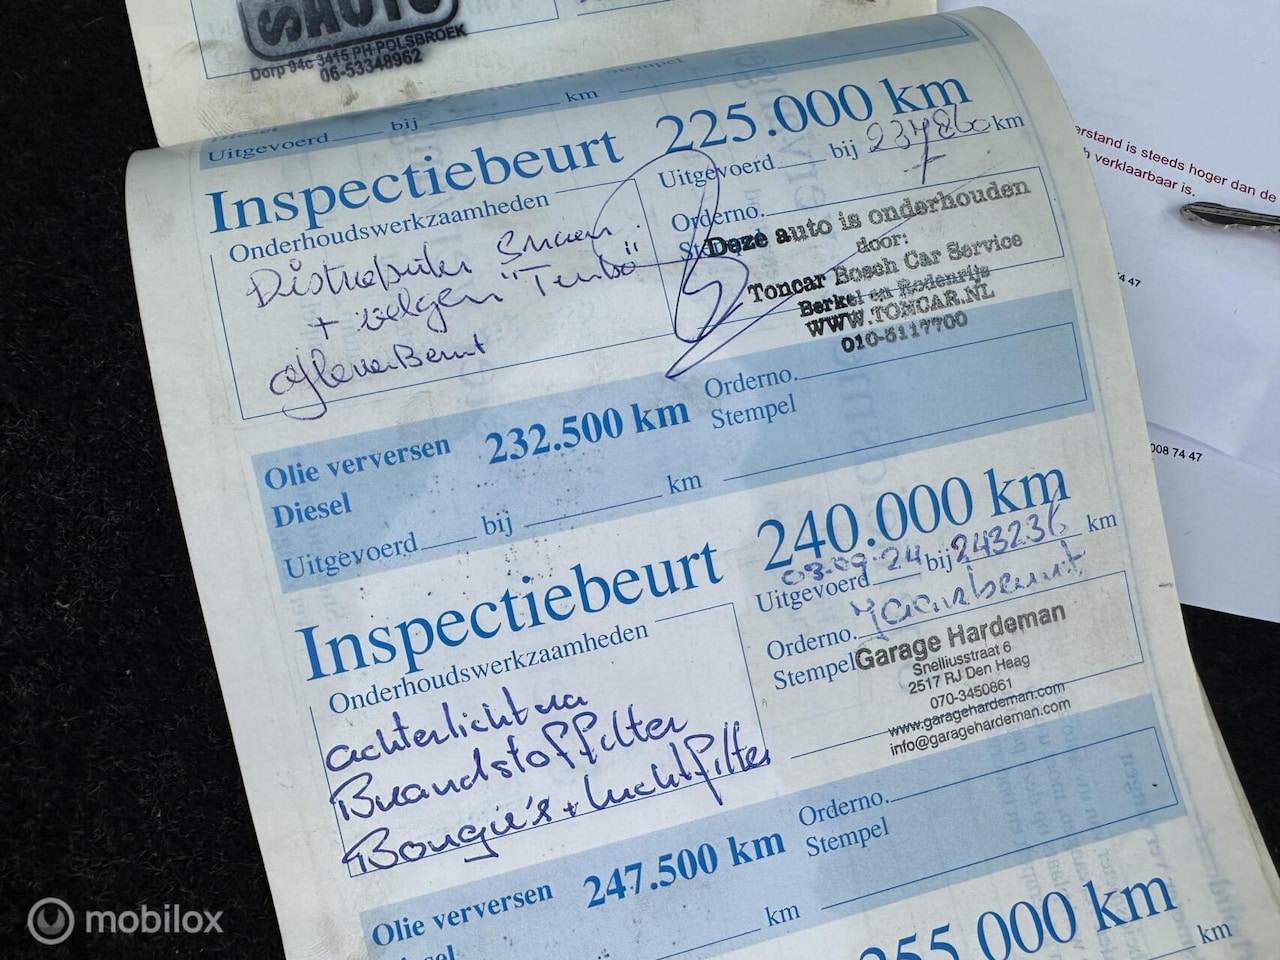 SAUTO
Dorp 94c 3415 PH POLSBROEK
06-53348962
Stempel
km
Uitgevoerd bij
Inspectiebeurt 225.000 km
Uitgevoerd bij km
Onderhoudswerkzaamheden
Orderno.
Deze auto is onderhouden
door:
Toncar Bosch Car Service
Berkel en Rodenrijs
WWW.TONCAR.NL
010-5117700
+ velgen "Turbo"
Afleverbeurt
Olie verversen 232.500 km Orderno.
Diesel Stempel
Uitgevoerd bij km
Inspectiebeurt 240.000 km
Uitgevoerd 03-09-24 bij 243236 km
Onderhoudswerkzaamheden
Orderno. Jaarsbeurt
Stempel Garage Hardeman
Snelliusstraat 6
2517 RJ Den Haag
070-3450861
www.garagehardeman.com
info@garagehardeman.com
achterlicht va
Brandstoffilter
Bougie's + luchtfilter
Olie verversen 247.500 km Orderno.
Stempel
km
255.000 km
km
erstand is steeds hoger dan de
h verklaarbaar is.
74 47
008 74 47
mobilox